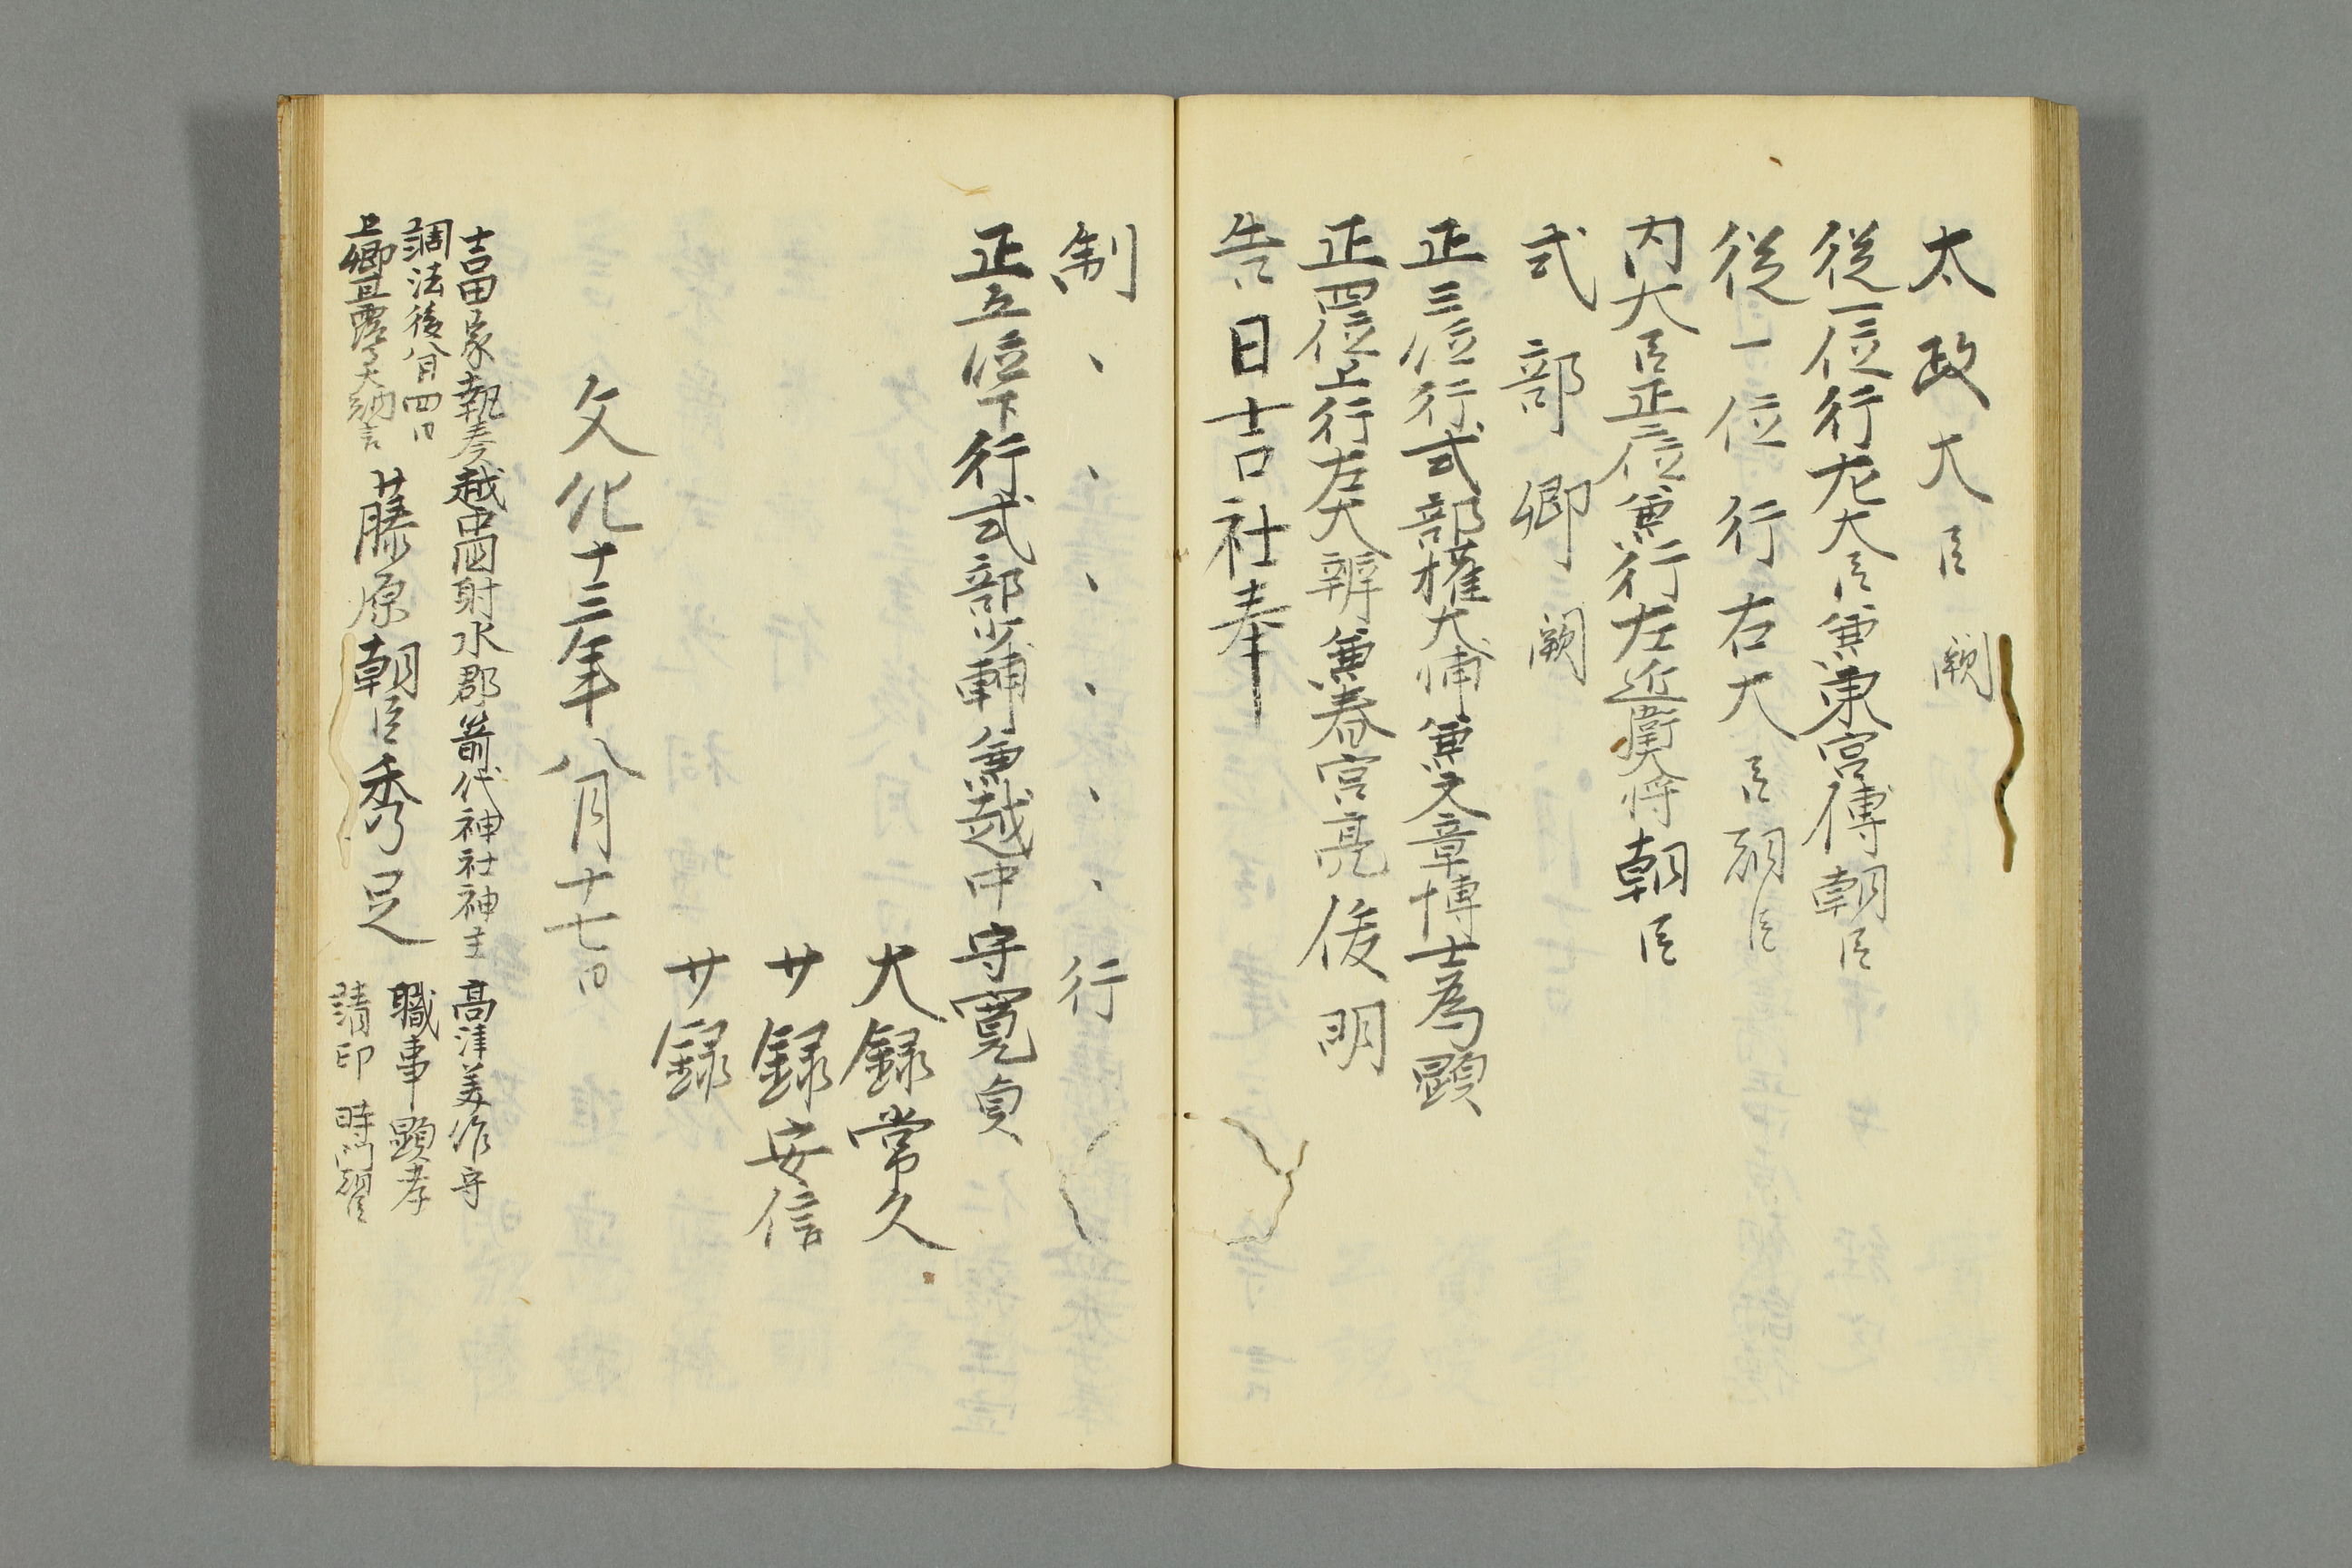 太政大臣 闕
従一位行左大臣兼東宮傅朝臣
従一位行右大臣朝臣
内大臣正二位兼行左近衛大将朝臣
式部卿 闕
正三位行式部権大輔兼文章博士為顕
正四位上行左大辨兼春宮亮俊明
告日吉社奉
制、、、、、、行
正五位下行式部少輔兼越中守寛貞
大録常久
廾録安信
廾録
文化十三年八月十七日
吉田家執奏越中国射水郡箭代神社神主 高津美作守
調法後八月四日 職事顕孝
上卿 大納言 請印 時門
藤原朝臣秀足